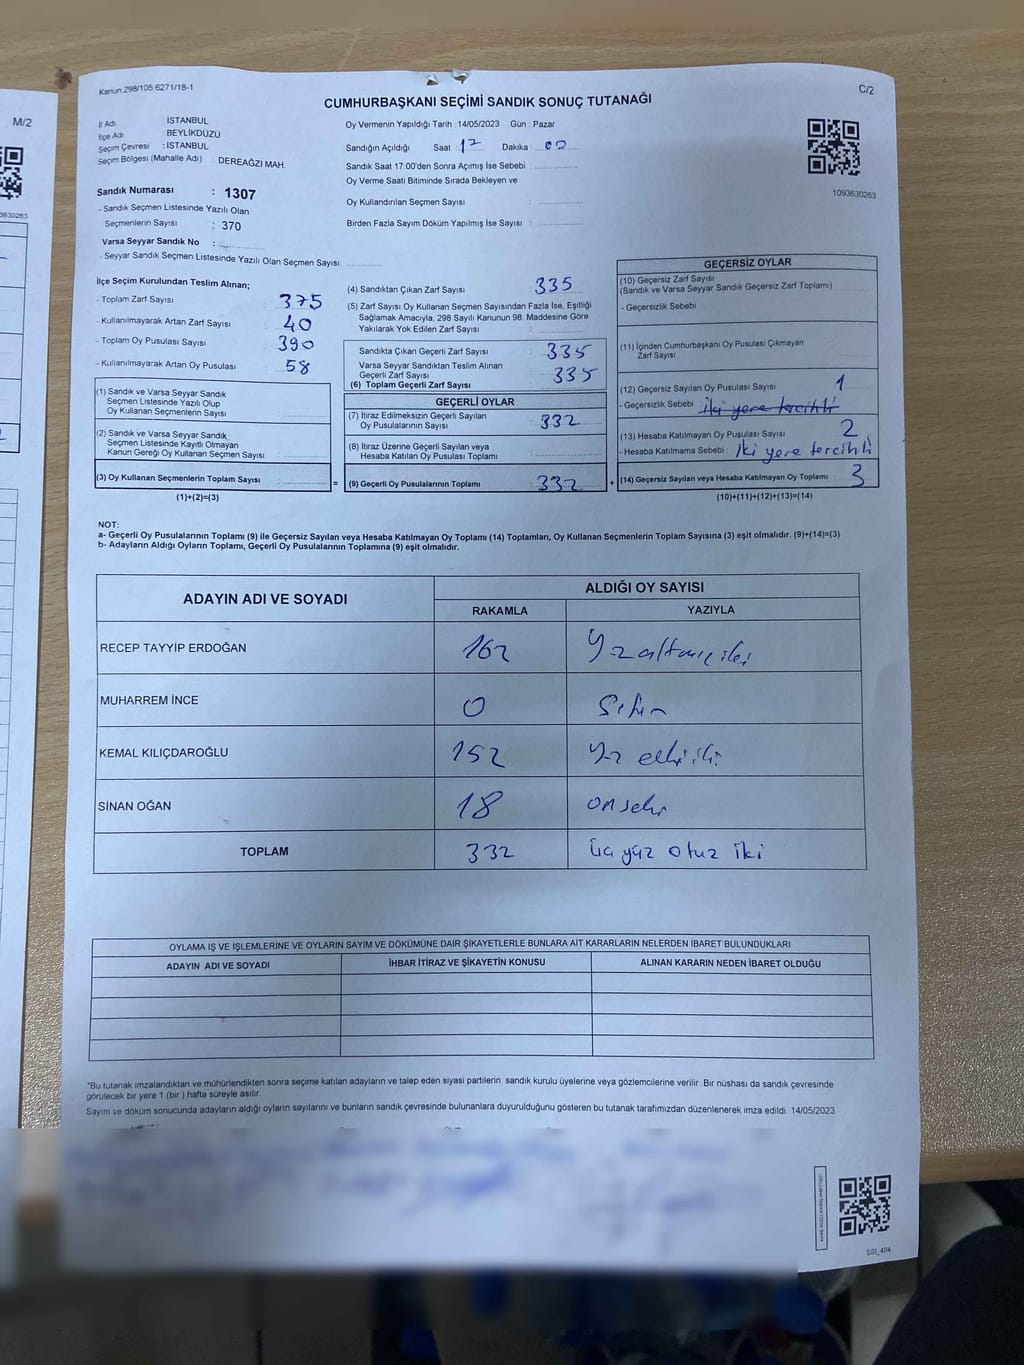 Kanun:298/105;6271/18-1
C/2
M/2
CUMHURBAŞKANI SEÇİMİ SANDIK SONUÇ TUTANAĞI
İl Adı : İSTANBUL
İlçe Adı : BEYLİKDÜZÜ
Seçim Çevresi : İSTANBUL
Seçim Bölgesi (Mahalle Adı) DEREAĞZI MAH.
Sandık Numarası : 1307
- Sandık Seçmen Listesinde Yazılı Olan
Seçmenlerin Sayısı : 370
Varsa Seyyar Sandık No :
- Seyyar Sandık Seçmen Listesinde Yazılı Olan Seçmen Sayısı:
Oy Vermenin Yapıldığı Tarih : 14/05/2023 Gün : Pazar
Sandığın Açıldığı Saat 17 Dakika 00
Sandık Saat 17:00'den Sonra Açımış İse Sebebi :
Oy Verme Saati Bitiminde Sırada Bekleyen ve
Oy Kullandırılan Seçmen Sayısı :
Birden Fazla Sayım Döküm Yapılmış İse Sayısı :
1093630263
3630263
İlçe Seçim Kurulundan Teslim Alınan;
- Toplam Zarf Sayısı : 375
- Kullanılmayarak Artan Zarf Sayısı : 40
- Toplam Oy Pusulası Sayısı : 390
- Kullanılmayarak Artan Oy Pusulası : 58
(1) Sandık ve Varsa Seyyar Sandık
Seçmen Listesinde Yazılı Olup
Oy Kullanan Seçmenlerin Sayısı :
(2) Sandık ve Varsa Seyyar Sandık
Seçmen Listesinde Kayıtlı Olmayan
Kanun Gereği Oy Kullanan Seçmen Sayısı :
(3) Oy Kullanan Seçmenlerin Toplam Sayısı :
(1)+(2)=(3)
(4) Sandıktan Çıkan Zarf Sayısı : 335
(5) Zarf Sayısı Oy Kullanan Seçmen Sayısından Fazla İse, Eşitliği
Sağlamak Amacıyla, 298 Sayılı Kanunun 98. Maddesine Göre
Yakılarak Yok Edilen Zarf Sayısı :
Sandıkta Çıkan Geçerli Zarf Sayısı : 335
Varsa Seyyar Sandıktan Teslim Alınan
Geçerli Zarf Sayısı : 335
(6) Toplam Geçerli Zarf Sayısı
GEÇERLİ OYLAR
(7) İtiraz Edilmeksizin Geçerli Sayılan
Oy Pusulalarının Sayısı : 332
(8) İtiraz Üzerine Geçerli Sayılan veya
Hesaba Katılan Oy Pusulası Toplamı :
= (9) Geçerli Oy Pusulalarının Toplamı : 332 +
GEÇERSİZ OYLAR
(10) Geçersiz Zarf Sayısı
(Sandık ve Varsa Seyyar Sandık Geçersiz Zarf Toplamı)
- Geçersizlik Sebebi
(11) İçinden Cumhurbaşkanı Oy Pusulası Çıkmayan
Zarf Sayısı
(12) Geçersiz Sayılan Oy Pusulası Sayısı 1
- Geçersizlik Sebebi İki yere tercihli
(13) Hesaba Katılmayan Oy Pusulası Sayısı 2
- Hesaba Katılmama Sebebi İki yere tercihli
(14) Geçersiz Sayılan veya Hesaba Katılmayan Oy Toplamı 3
(10)+(11)+(12)+(13)=(14)
NOT:
a- Geçerli Oy Pusulalarının Toplamı (9) ile Geçersiz Sayılan veya Hesaba Katılmayan Oy Toplamı (14) Toplamları, Oy Kullanan Seçmenlerin Toplam Sayısına (3) eşit olmalıdır. (9)+(14)=(3)
b- Adayların Aldığı Oyların Toplamı, Geçerli Oy Pusulalarının Toplamına (9) eşit olmalıdır.
ADAYIN ADI VE SOYADI
ALDIĞI OY SAYISI
RAKAMLA YAZIYLA
RECEP TAYYİP ERDOĞAN 162 Yüzaltmış iki
MUHARREM İNCE 0 Sıfır
KEMAL KILIÇDAROĞLU 152 Yüz elli iki
SİNAN OĞAN 18 onsekiz
TOPLAM 332 üç yüz otuz iki
OYLAMA İŞ VE İŞLEMLERİNE VE OYLARIN SAYIM VE DÖKÜMÜNE DAİR ŞİKAYETLERLE BUNLARA AİT KARARLARIN NELERDEN İBARET BULUNDUKLARI
ADAYIN ADI VE SOYADI İHBAR İTİRAZ VE ŞİKAYETİN KONUSU ALINAN KARARIN NEDEN İBARET OLDUĞU
*Bu tutanak imzalandıktan ve mühürlendikten sonra seçime katılan adayların ve talep eden siyasi partilerin sandık kurulu üyelerine veya gözlemcilerine verilir. Bir nüshası da sandık çevresinde
görülecek bir yere 1 (bir ) hafta süreyle asılır.
Sayım ve döküm sonucunda adayların aldığı oyların sayılarını ve bunların sandık çevresinde bulunanlara duyurulduğunu gösteren bu tutanak tarafımızdan düzenlenerek imza edildi. 14/05/2023
SSI_404